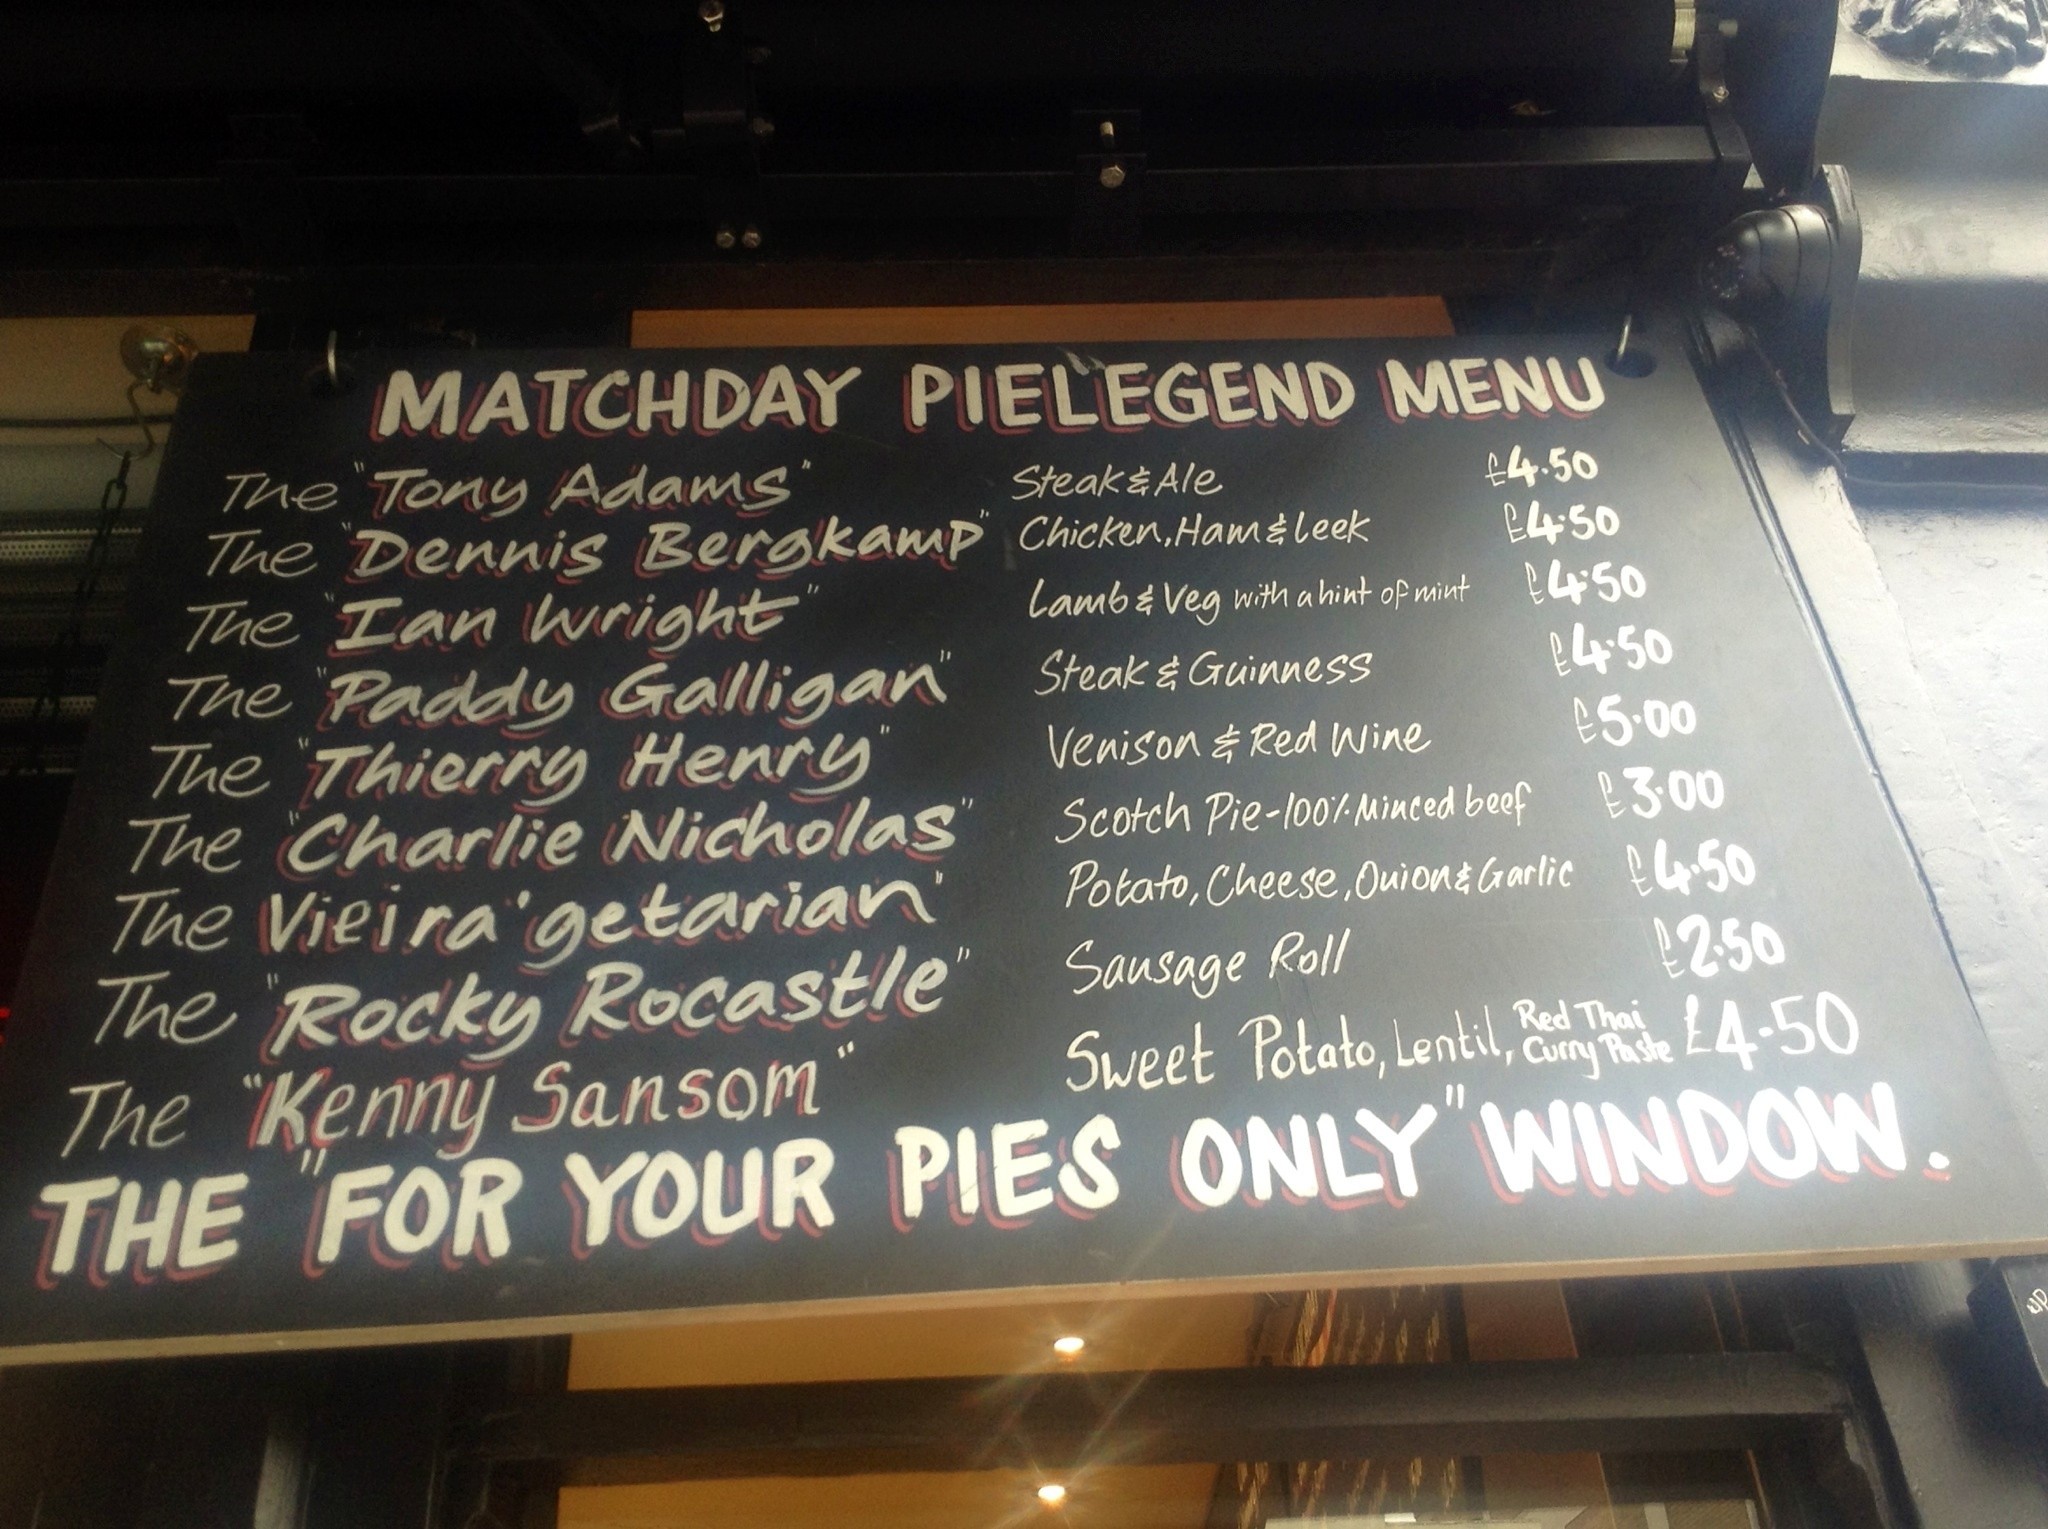 MATCHDAY PIELEGEND MENU
The "Tony Adams" Steak & Ale £4.50
The "Dennis Bergkamp" Chicken, Ham & Leek £4.50
The "Ian Wright" Lamb & Veg with a hint of mint £4.50
The "Paddy Galligan" Steak & Guinness £4.50
The "Thierry Henry" Venison & Red Wine £5.00
The "Charlie Nicholas" Scotch Pie-100% Minced beef £3.00
The Vieira'getarian" Potato, Cheese, Onion & Garlic £4.50
The "Rocky Rocastle" Sausage Roll £2.50
The "Kenny Sansom" Sweet Potato, Lentil, Red Thai Curry Paste £4.50
THE "FOR YOUR PIES ONLY" WINDOW.